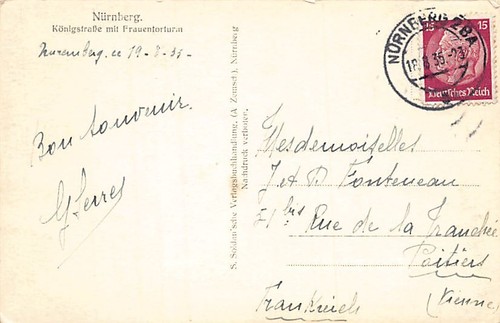 Nürnberg.
Königstraße mit Frauentorturm
Nuremberg le 19-8-35-
Bon souvenir
S. Soldan'sche Verlagsbuchhandlung, (A. Zemsch), Nürnberg
Nachdruck verboten.
NÜRNBERG 2 BA
18.8.35-23
15 15
Deutsches Reich
Mesdemoiselles
J et P Fonteneau
51 bis Rue de la Tranchée
Poitiers
(Vienne)
Frankreich